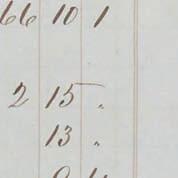 66 10 1
2 15 "
13 "